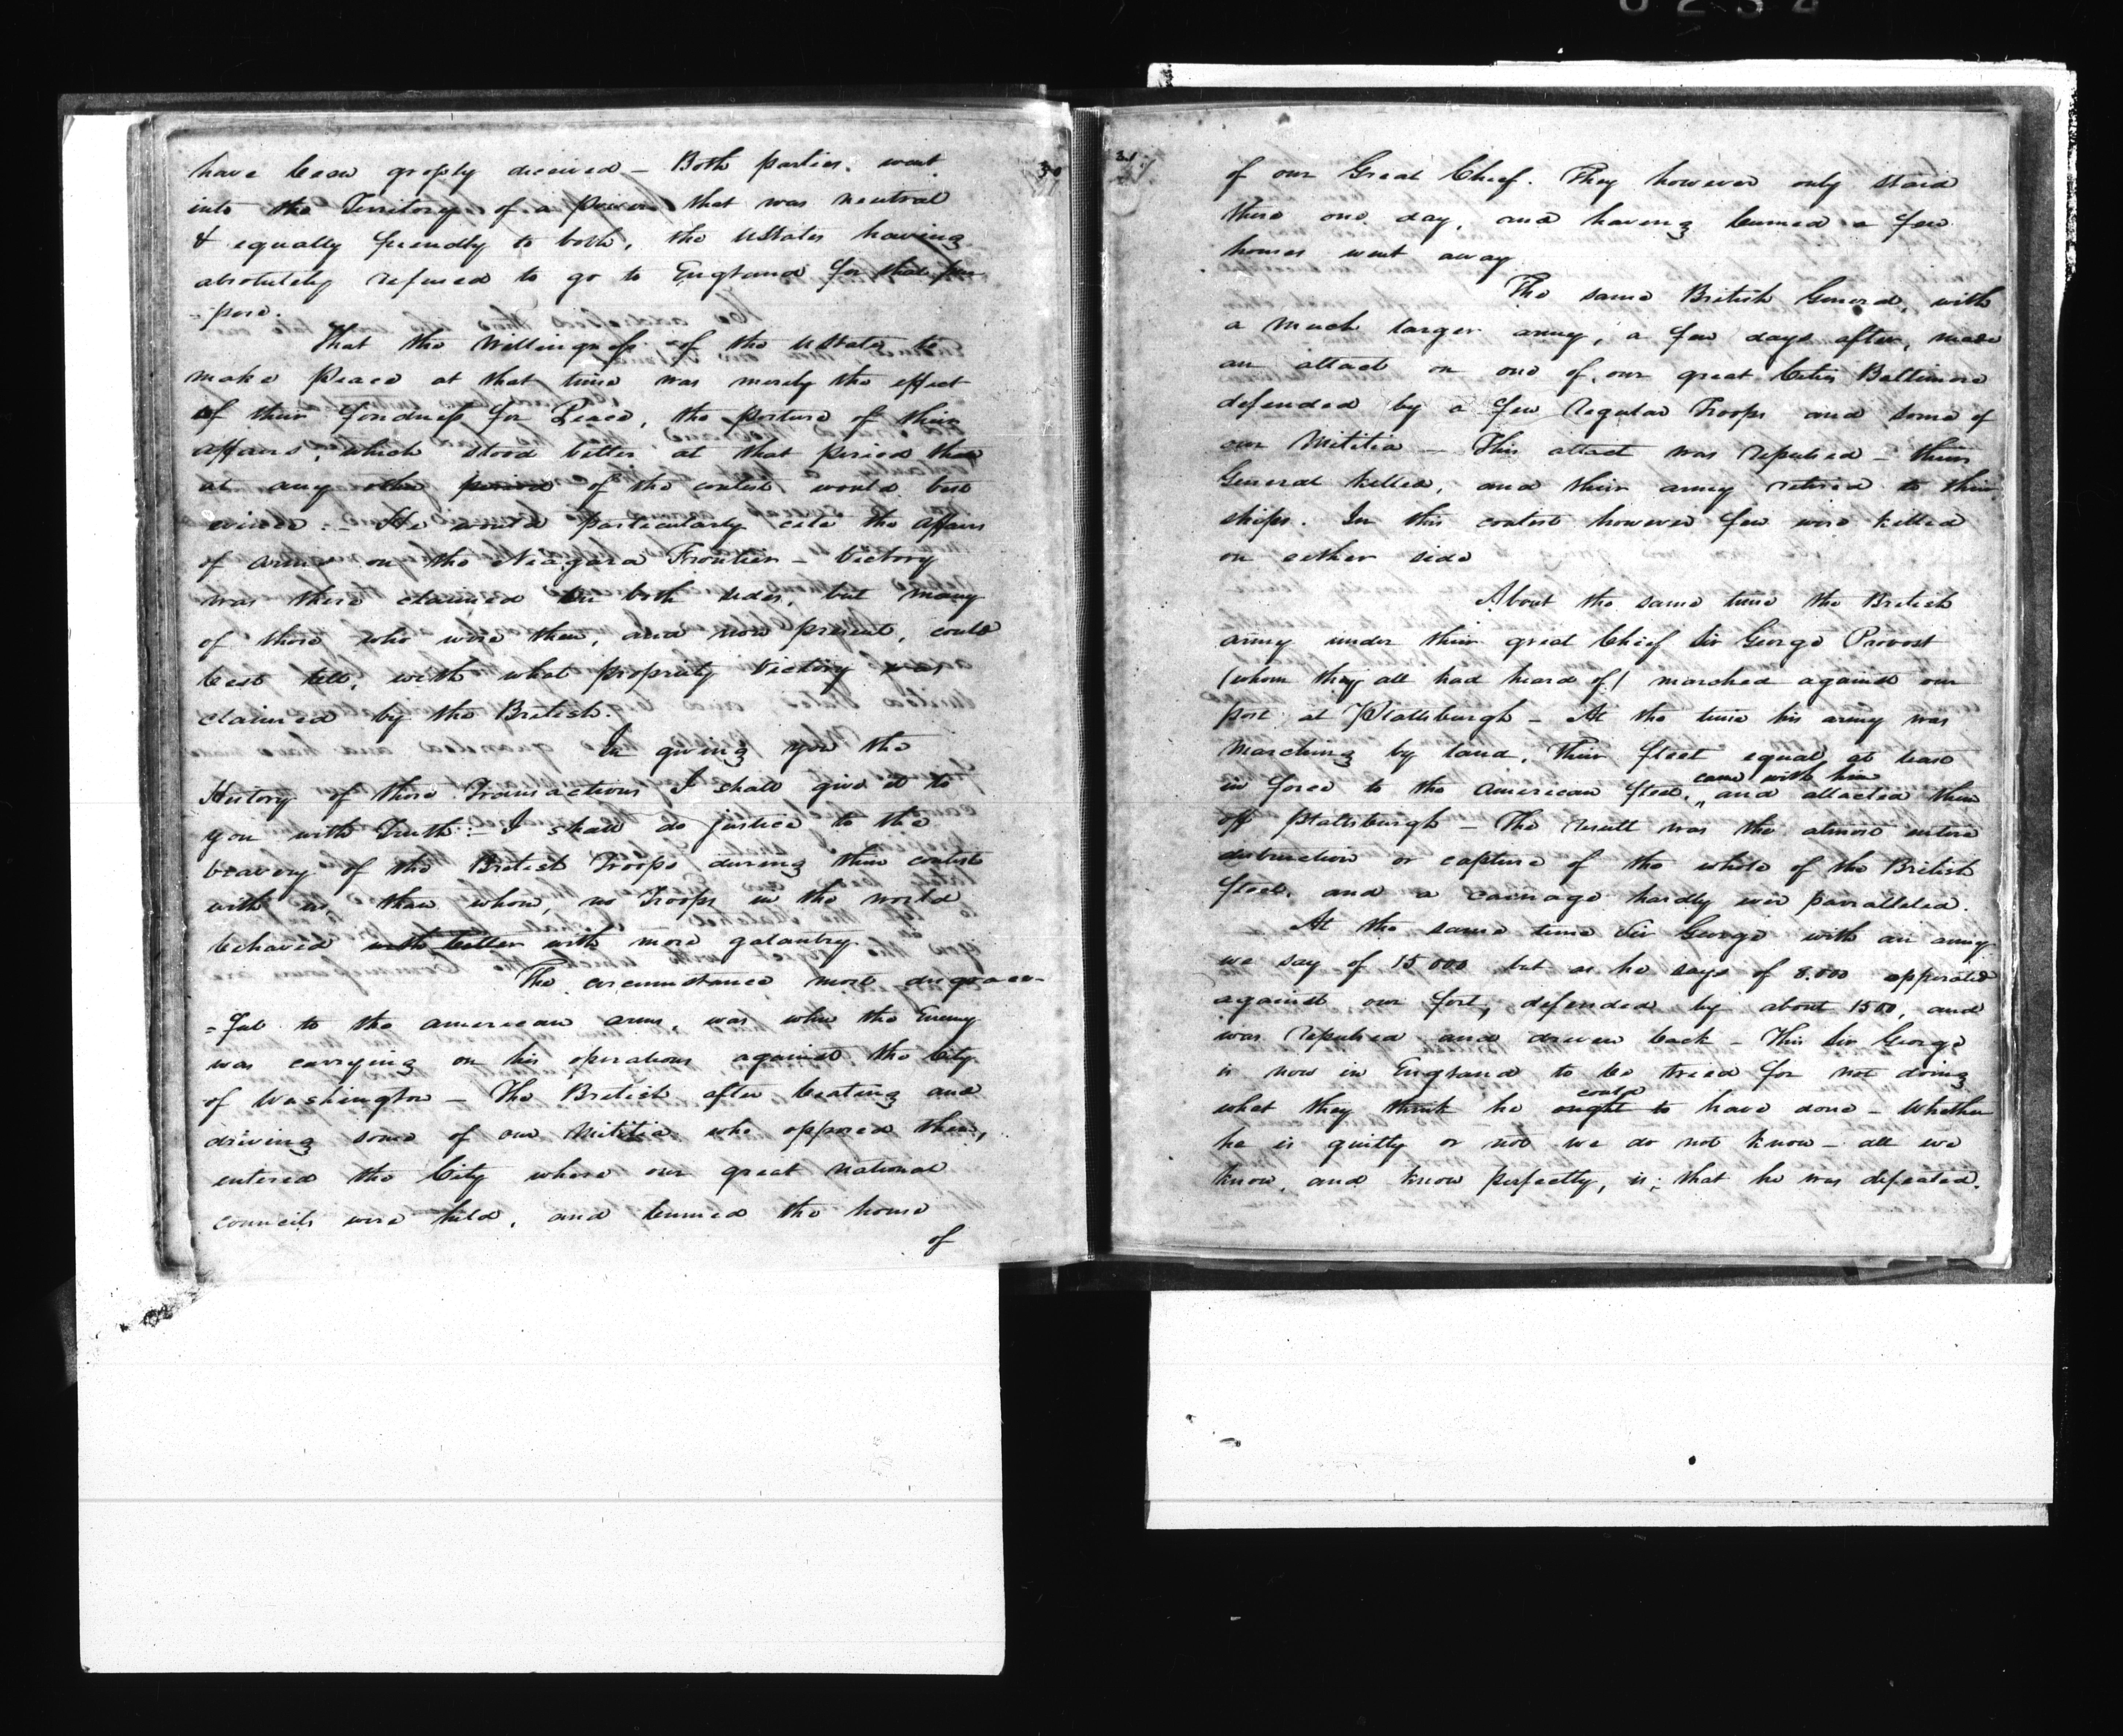 30
have been grossly deceived — Both parties went
into the Territory of a power that was neutral
& equally friendly to both, the UStates having
absolutely refused to go to England for that pur
=pose.
That the Willingness of the UStates to
make Peace at that time was merely the effect
of their fondness for Peace, the posture of their
affairs, which stood better at that period than
at any other period of the contest would best
evince :— He would particularly cite the affairs
of arms on the Niagara Frontier — Victory
was there claimed on both sides, but many
of those who were then, and now present, could
best tell, with what propriety Victory was
claimed by the British.
In giving you the
History of those Transactions I shall give it to
you with Truth :— I shall do justice to the
bravery of the British Troops during their contest
with us than whom, no Troops in the world
behaved with better with more galantry.
The circumstance most disgrace-
=ful to the american arms, was when the Enemy
was carrying on his operations against the City
of Washington — The British after beating and
driving some of our Militia who opposed them,
entered the City where our great National
councils were held, and burned the house
of
31
of our Great Chief. They however only staid
there one day, and having burned a few
houses went away
The same British General, with
a much larger army, a few days after, made
an attack on one of our great Cities Baltimore
defended by a few Regular Troops and some of
our Militia — This attack was repulsed — their
General killed, and their army retired to their
ships. In this contest however few were killed
on either side
About the same time the British
army under their great Chief Sir George Provost
(whom they all had heard of) marched against our
post at Plattsburgh — At the time his army was
marching by land, Their fleet equal at least
came with him
in force to the American fleet, and attacked them
off Plattsburgh — The result was the almost entire
destruction or capture of the whole of the British
fleet, and a carnage hardly ever parralleled.
At the same time Sir George with an army
we say of 15000 but as he says of 8.000 opperated
against our fort, defended by about 1500, and
was repulsed and driven back — This Sir George
is now in England to be tried for not doing
could
what they think he ought to have done — Whether
he is guilty or not we do not know — all we
know, and know perfectly, is; that he was defeated.